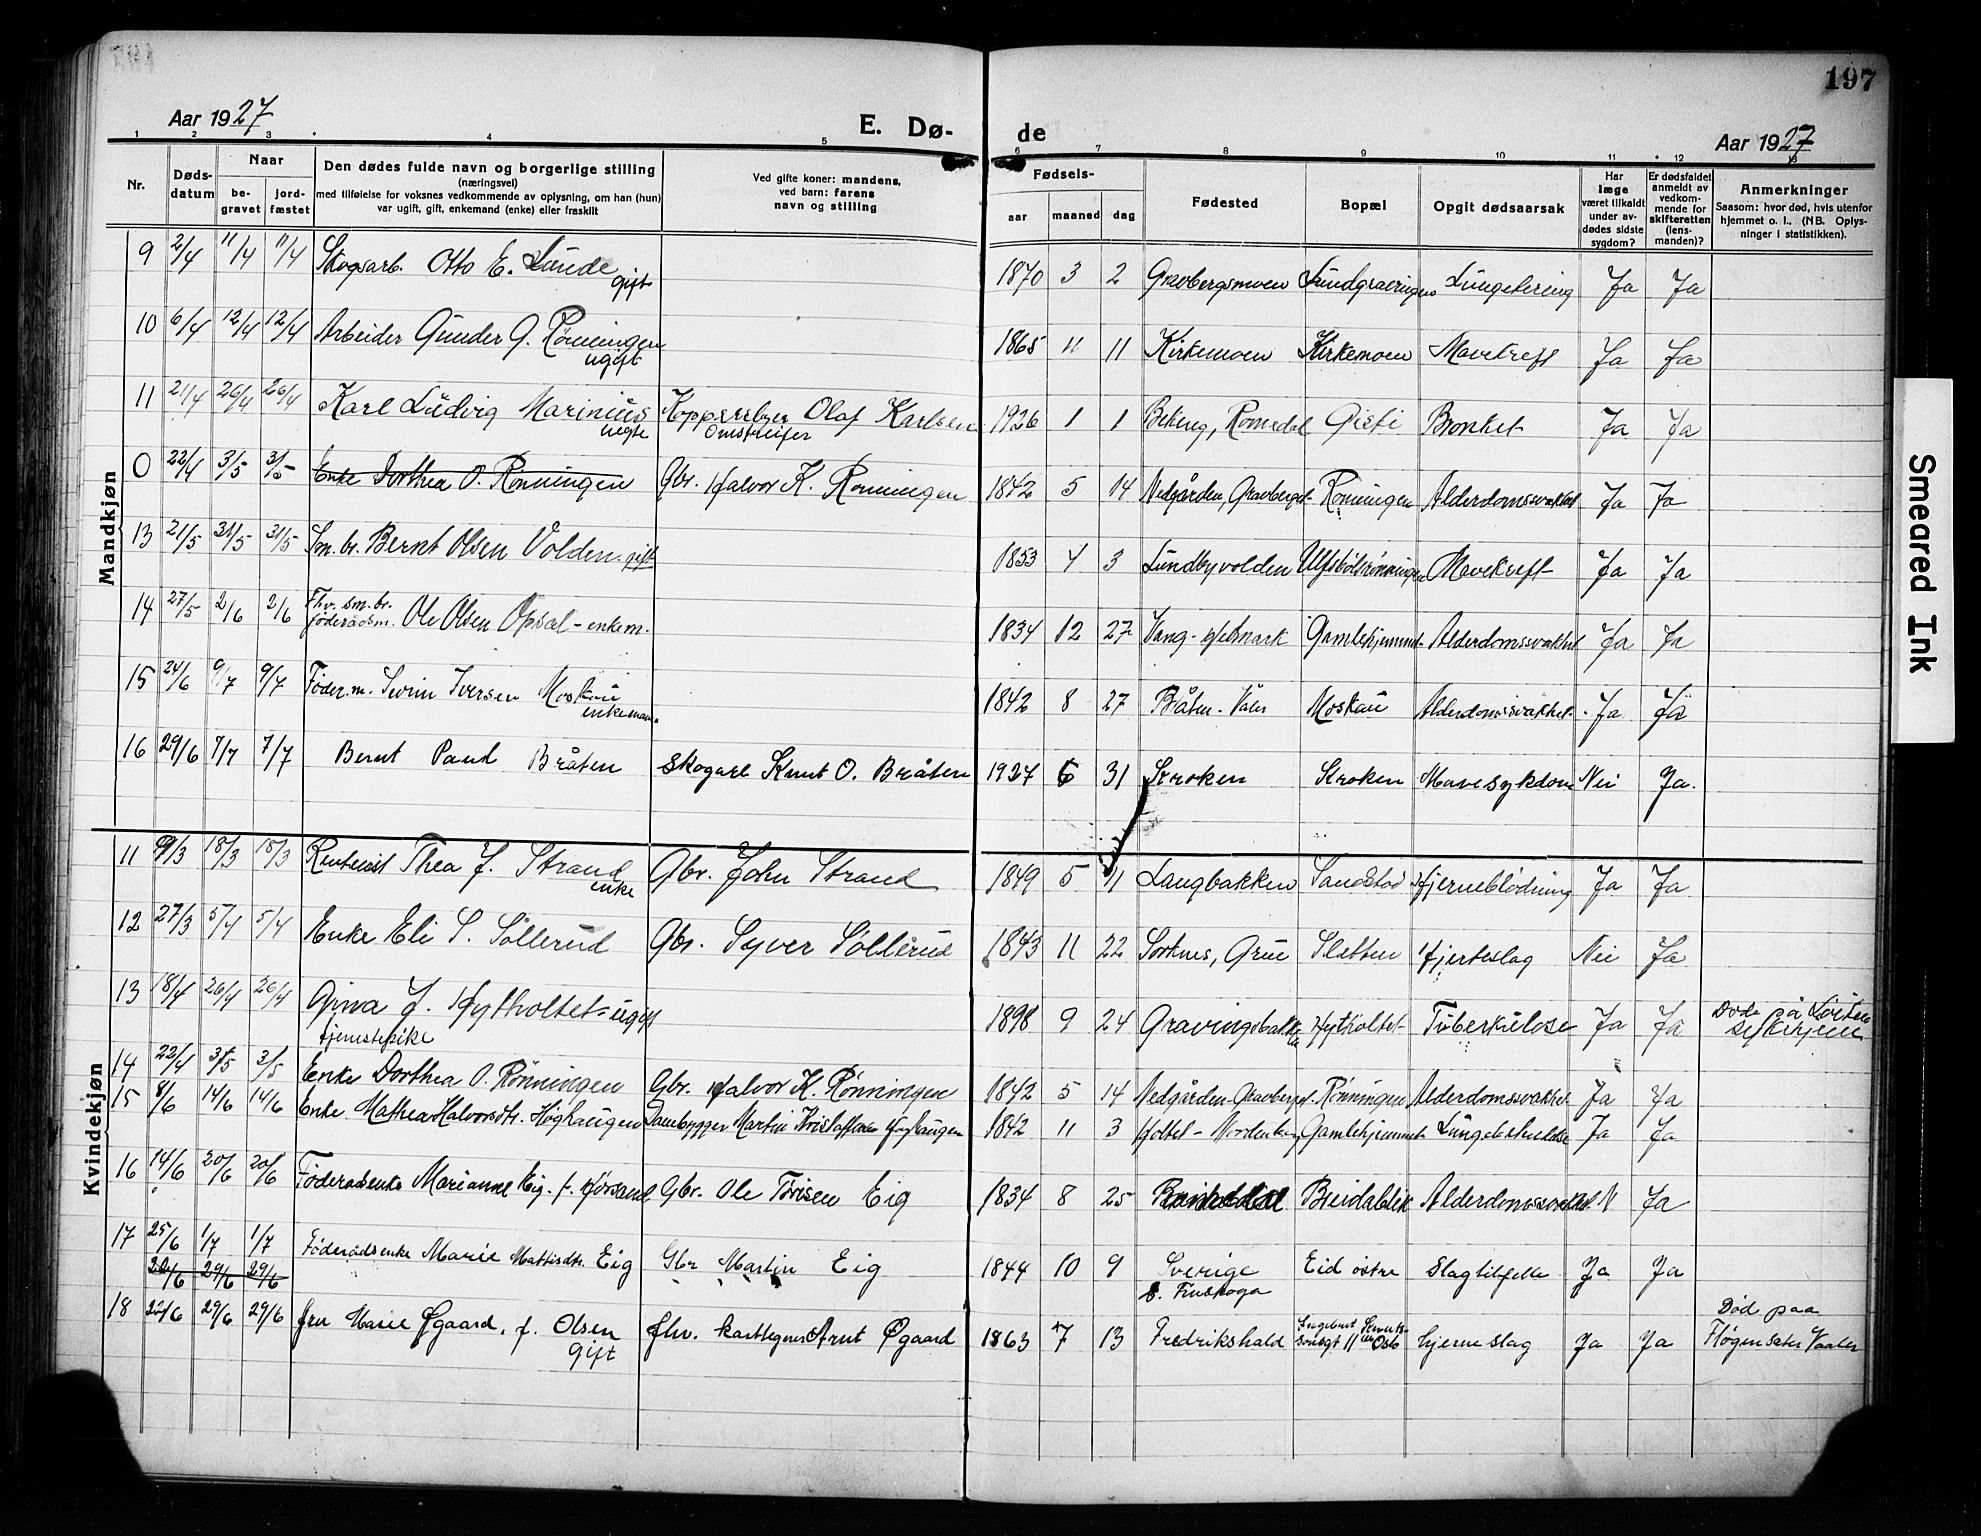 197
Aar 1927
E. Dø-
de
Aar 1927
1 2 3 4 5 6 7 8 9 10 11 12 13
Nr.
Døds-
datum
Naar
be-
gravet
jord-
fæstet
Den dødes fulde navn og borgerlige stilling
(næringsvei)
med tilføielse for voksnes vedkommende av oplysning, om han (hun)
var ugift, gift, enkemand (enke) eller fraskilt
Ved gifte koner: mandens,
ved barn: farens
navn og stilling
Fødsels-
aar maaned dag
Fødested
Bopæl
Opgit dødsaarsak
Har
læge
været tilkaldt
under av-
dødes sidste
sygdom?
Er dødsfaldet
anmeldt av
vedkom-
mende for
skifteretten
(lens-
manden)?
Anmerkninger
Saasom: hvor død, hvis utenfor
hjemmet o. l., (NB. Oplys-
ninger i statistikken).
Mandkjøn
9 2/4 11/4 11/4 Skogsarb. Otto E. Lunde gift 1870 3 2 Gravbergsmoen Lungetæring Ja Ja
10 6/4 12/4 12/4 Arbeider Gunder G. Rønningen ugift 1865 11 11 Kirkemoen Kirkemoen Mavekreft Ja Ja
11 21/4 26/4 26/4 Karl Ludvig Marinius Olaf Karlsen 1926 1 1 Romedal Bronkit Ja Ja
0 22/4 3/5 3/5 Enke Dorthea O. Rønningen Gbr. Halvor K. Rønningen 1842 5 14 Nedgården, Gravberget Rønningen Alderdomssvakhet Ja Ja
13 21/5 31/5 31/5 Sm. br. Bernt Olsen Volden gift 1853 4 3 Lundbyvolden Mavekreft Ja Ja
14 27/5 2/6 2/6 Fhv. sm. br. føderådsm. Ole Olsen Opsal - enkem. 1834 12 27 Vang - Hedmark Gamlehjemmet Alderdomssvakhet Ja Ja
15 24/6 9/7 9/7 Føder. m. Iversen Moskau enkemann 1842 8 27 Bråten - Våler Moskau Alderdomssvakhet Ja Ja
16 29/6 7/7 7/7 Bernt Paul Bråten skogarb Knut O. Bråten 1927 6 31 Kroken Kroken Mavesykdom Nei Ja.
Kvindekjøn
11 9/3 18/3 18/3 Rentenist Thea J. Strand enke Gbr. John Strand 1849 5 11 Langbakken Sandstad Hjerneblødning Ja Ja
12 27/3 5/4 5/4 Enke Eli S. Sollerud Gbr. Syver Sollerud 1843 11 22 Sorknes, Grue Sletten Hjerteslag Nei Ja
13 18/4 26/4 26/4 Gina J. Hytholtet - ugift tjenestepike 1898 9 24 Gravingsbakken Hytholtet Tuberkulose Ja Ja Døde på Løiten sykehjem
14 22/4 3/5 3/5 Enke Dorthea O. Rønningen Gbr. Halvor K. Rønningen 1842 5 14 Nedgården - Gravberget Rønningen Alderdomssvakhet Ja Ja
15 8/6 14/6 14/6 Enke Mathea Halvorsdtr. Høghaugen Dambygger Martin Kristoffersen Høghaugen 1842 11 3 Holtet - Nordenberg Gamlehjemmet Ja Ja
16 14/6 20/6 20/6 Føderådsenke Marianne Eig. f. Gbr. Ole Eig 1834 8 25 Alderdomssvakhet N Ja
17 25/6 1/7 1/7 Føderådsenke Marie Mattisdtr. Eig Gbr Martin Eig 1844 10 9 Sverige s. Finskoga Eid østre slagtilfelle Ja Ja
22/6 29/6 29/6
18 22/6 29/6 29/6 fru Marie Øgaard, f. Olsen gift fhv. Arnt Øgaard 1863 7 13 Fredrikshald 11 Oslo hjerneslag Ja Ja Død paa Haagensæter Vaaler
Smeared Ink